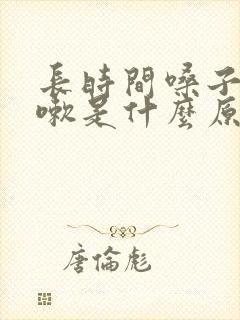 長時間嗓子
嗽是什麼原
唐倫彪